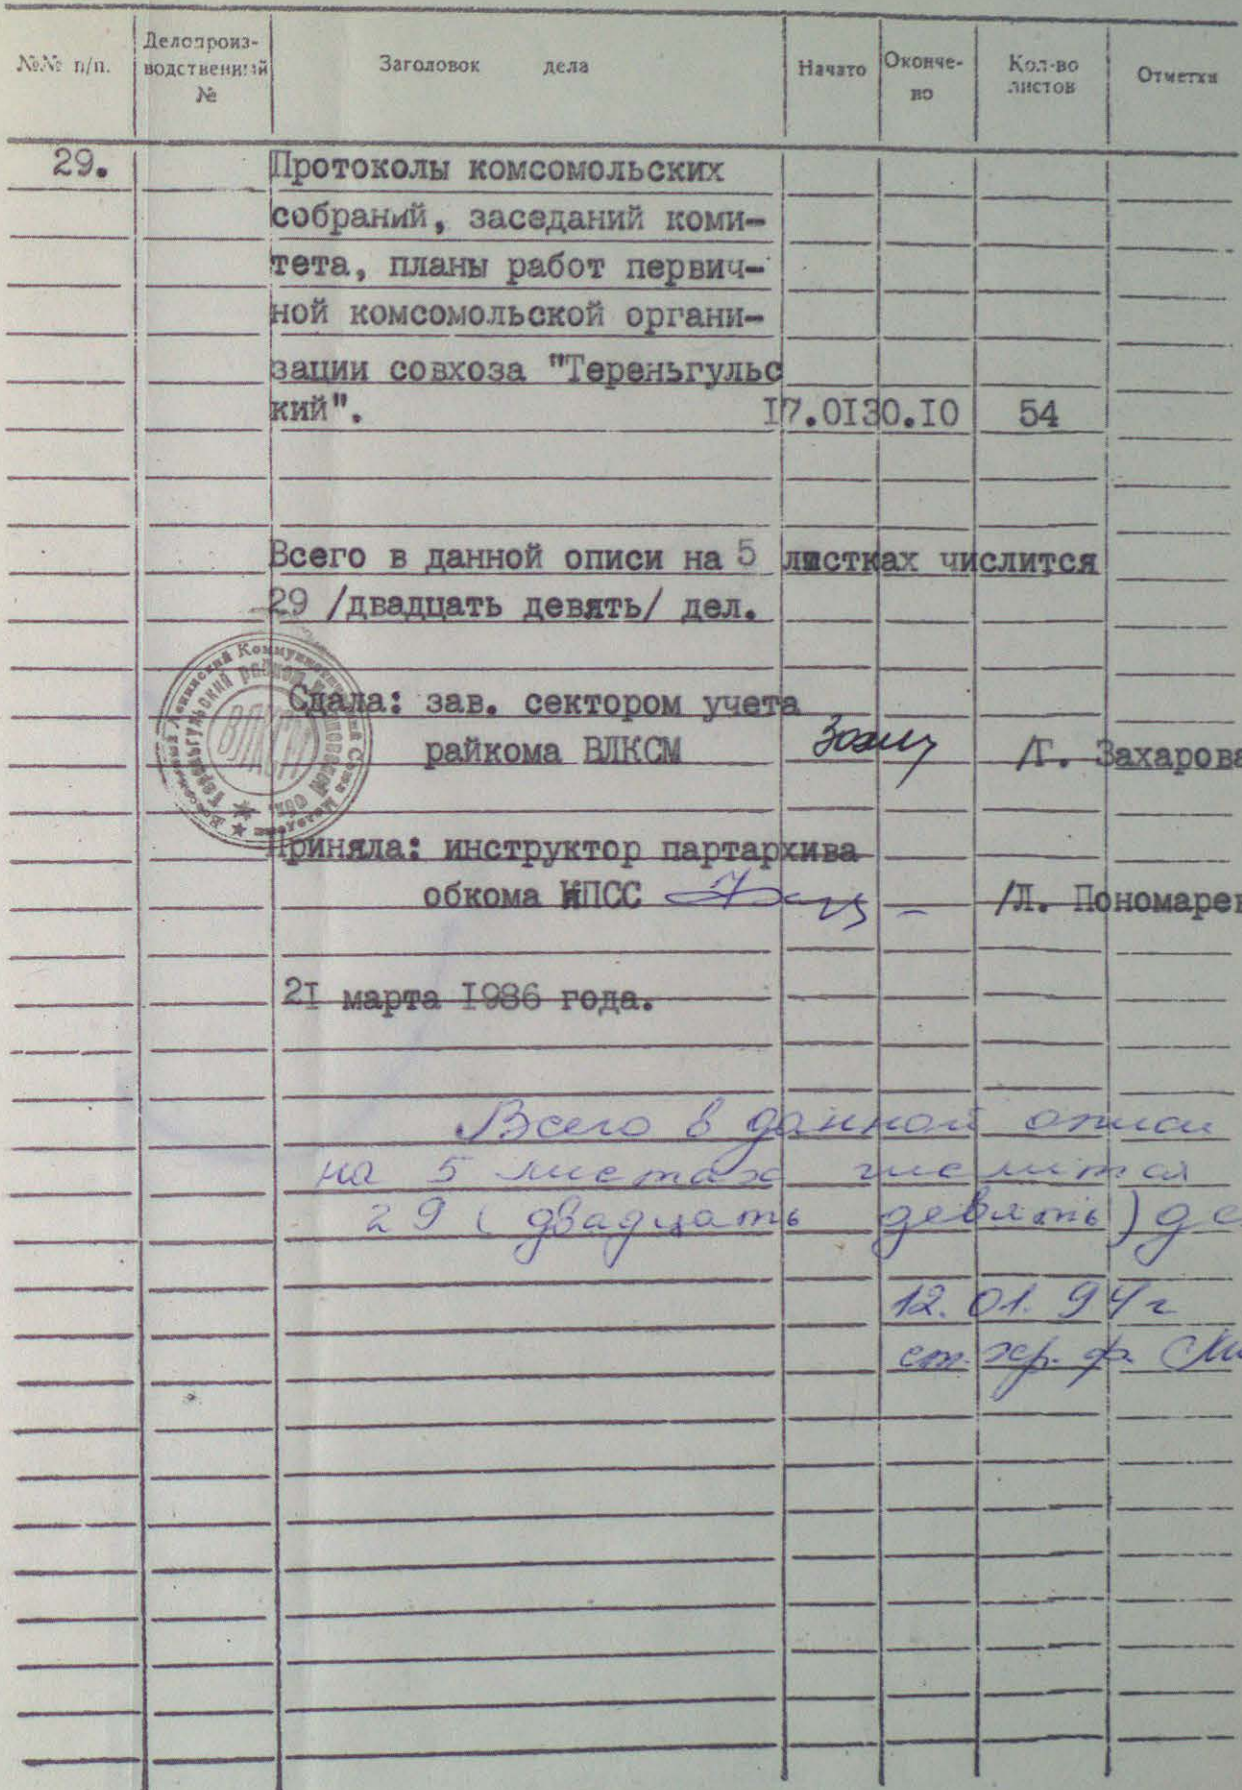 №№ п/п. Делопроиз-водственный № Заголовок дела Начато Окончено Кол-во листов Отметки
29. Протоколы комсомольских
собраний, заседаний коми-
тета, планы работ первич-
ной комсомольской органи-
зации совхоза "Тереньгульс
кий". I7.0I 30.I0 54
Всего в данной описи на 5 листках числится
29 /двадцать девять/ дел.
ВЛКСМ
Сдала: зав. сектором учета
райкома ВЛКСМ /Г. Захарова
Приняла: инструктор партархива
обкома КПСС /Л. Пономарев
2I марта I986 года.
Всего в данной описи
на 5 листах числится
29 (двадцать девять) де
12.01.94г
ст. хр. ф.